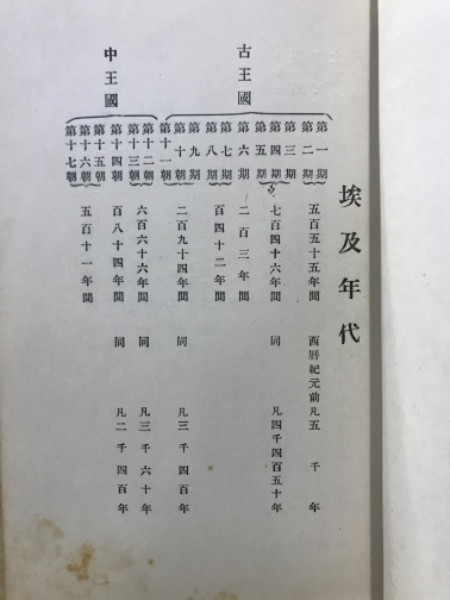 埃及年代
古王國
第一期
第二期 五百五十五年間 西曆紀元前凡五千年
第三期
第四期 七百四十六年間 同 凡四千四百五十年
第五期
第六期 二百三年間
第七期
第八期 百四十二年間
第九期
第十朝 二百九十四年間 同 凡三千四百年
第十一朝
中王國
第十二朝
第十三朝 六百六十六年間 同 凡三千六十年
第十四朝 百八十四年間 同 凡二千四百年
第十五朝
第十六朝 五百十一年間
第十七朝